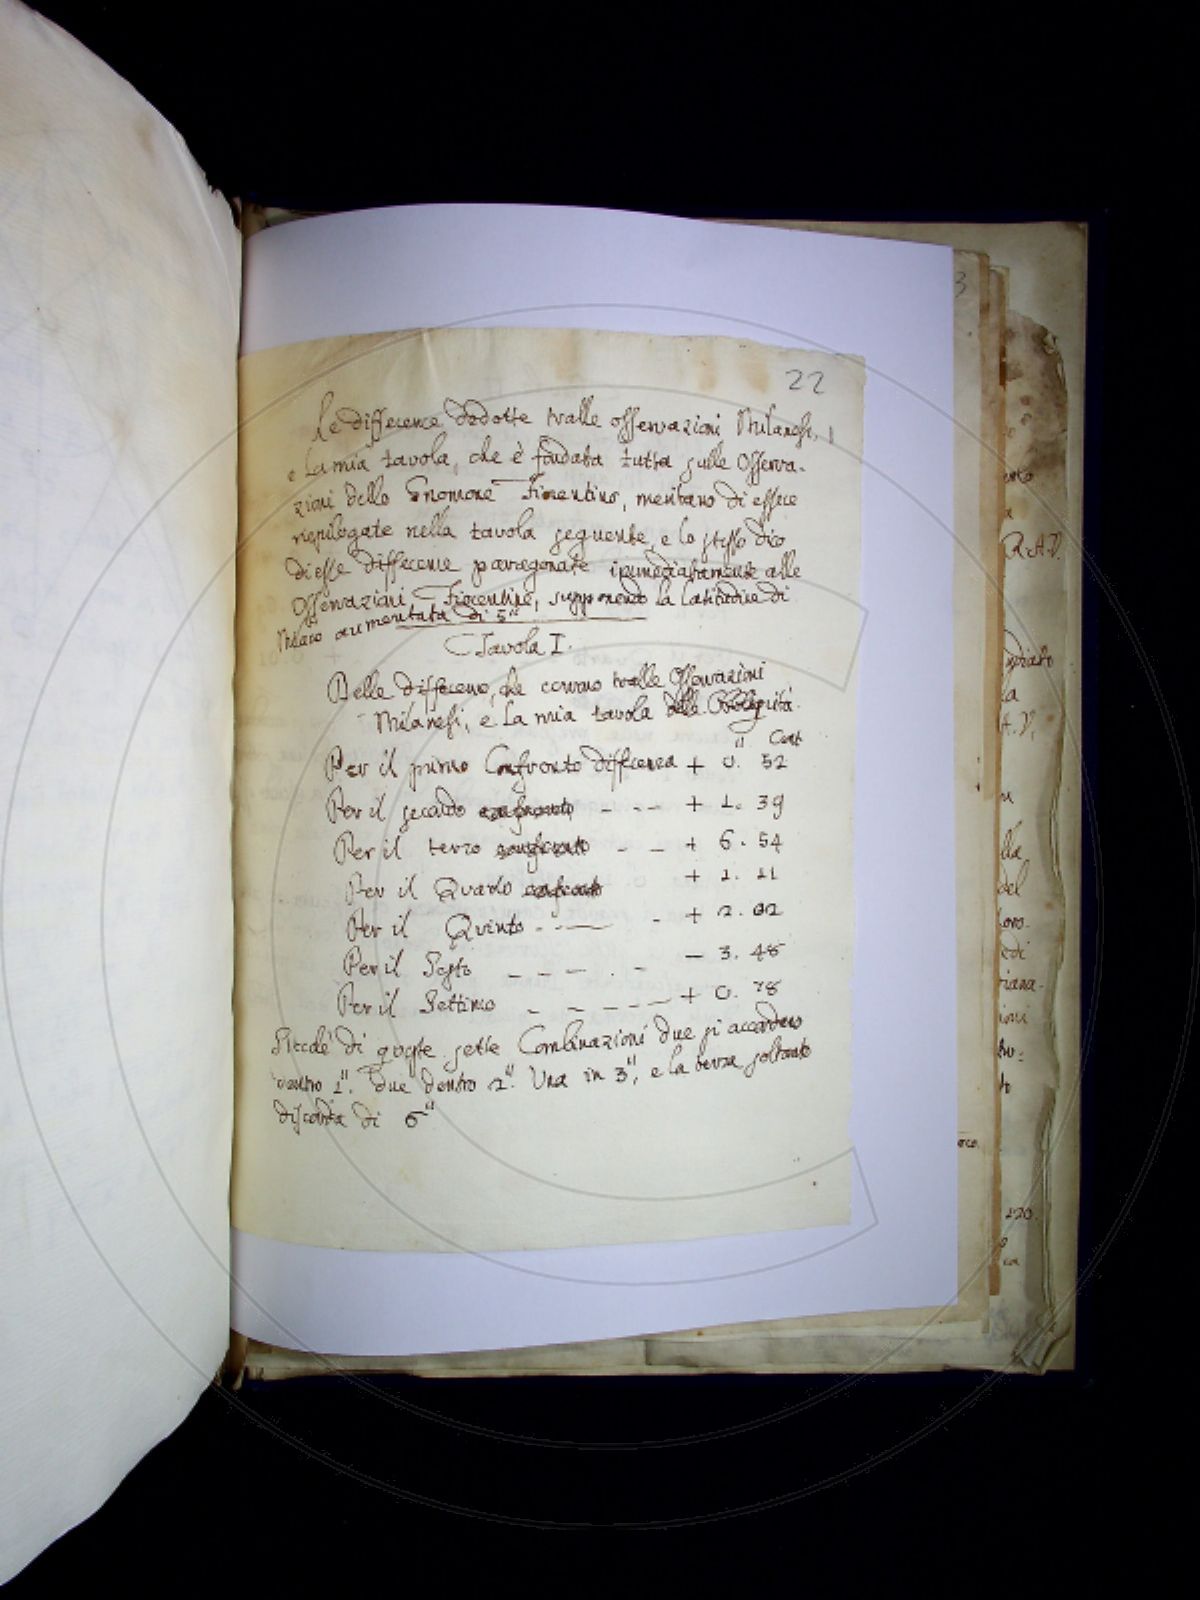 22
Le differenze dedotte tralle osservazioni Milanesi,
e la mia tavola, che è fondata tutta sulle Osserva-
zioni dello Gnomone Fiorentino, meritano di essere
riepilogate nella tavola seguente, e lo stesso dico
di esse differenze paragonate immediatamente alle
Osservazioni Fiorentine, supponendo la latitudine di
Milano aumentata di 5"
Tavola I.
Delle differenze, che corrono tralle Osservazioni
Milanesi, e la mia tavola delle Obbliquità.
" Cent
Per il primo Confronto differenza + 0. 52
Per il secondo confronto - - - + 1. 39
Per il terzo confronto - - + 6. 54
Per il Quarto confronto + 1. 21
Per il Quinto - - - + 2. 02
Per il Sesto - - - . - - 3. 48
Per il Settimo - - - - - + 0. 78
Sicché di queste sette Combinazioni due si accordano
dentro 1". due dentro 2". Una in 3", e la terza soltanto
discorda di 6"
3
R.A.D.
A.D.
la
del
220.